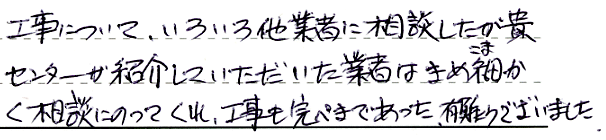 工事について、いろいろ他業者に相談したが貴
センターが紹介していただいた業者はきめ細か
く相談にのってくれ、工事も完ぺきであった、有難うございました。